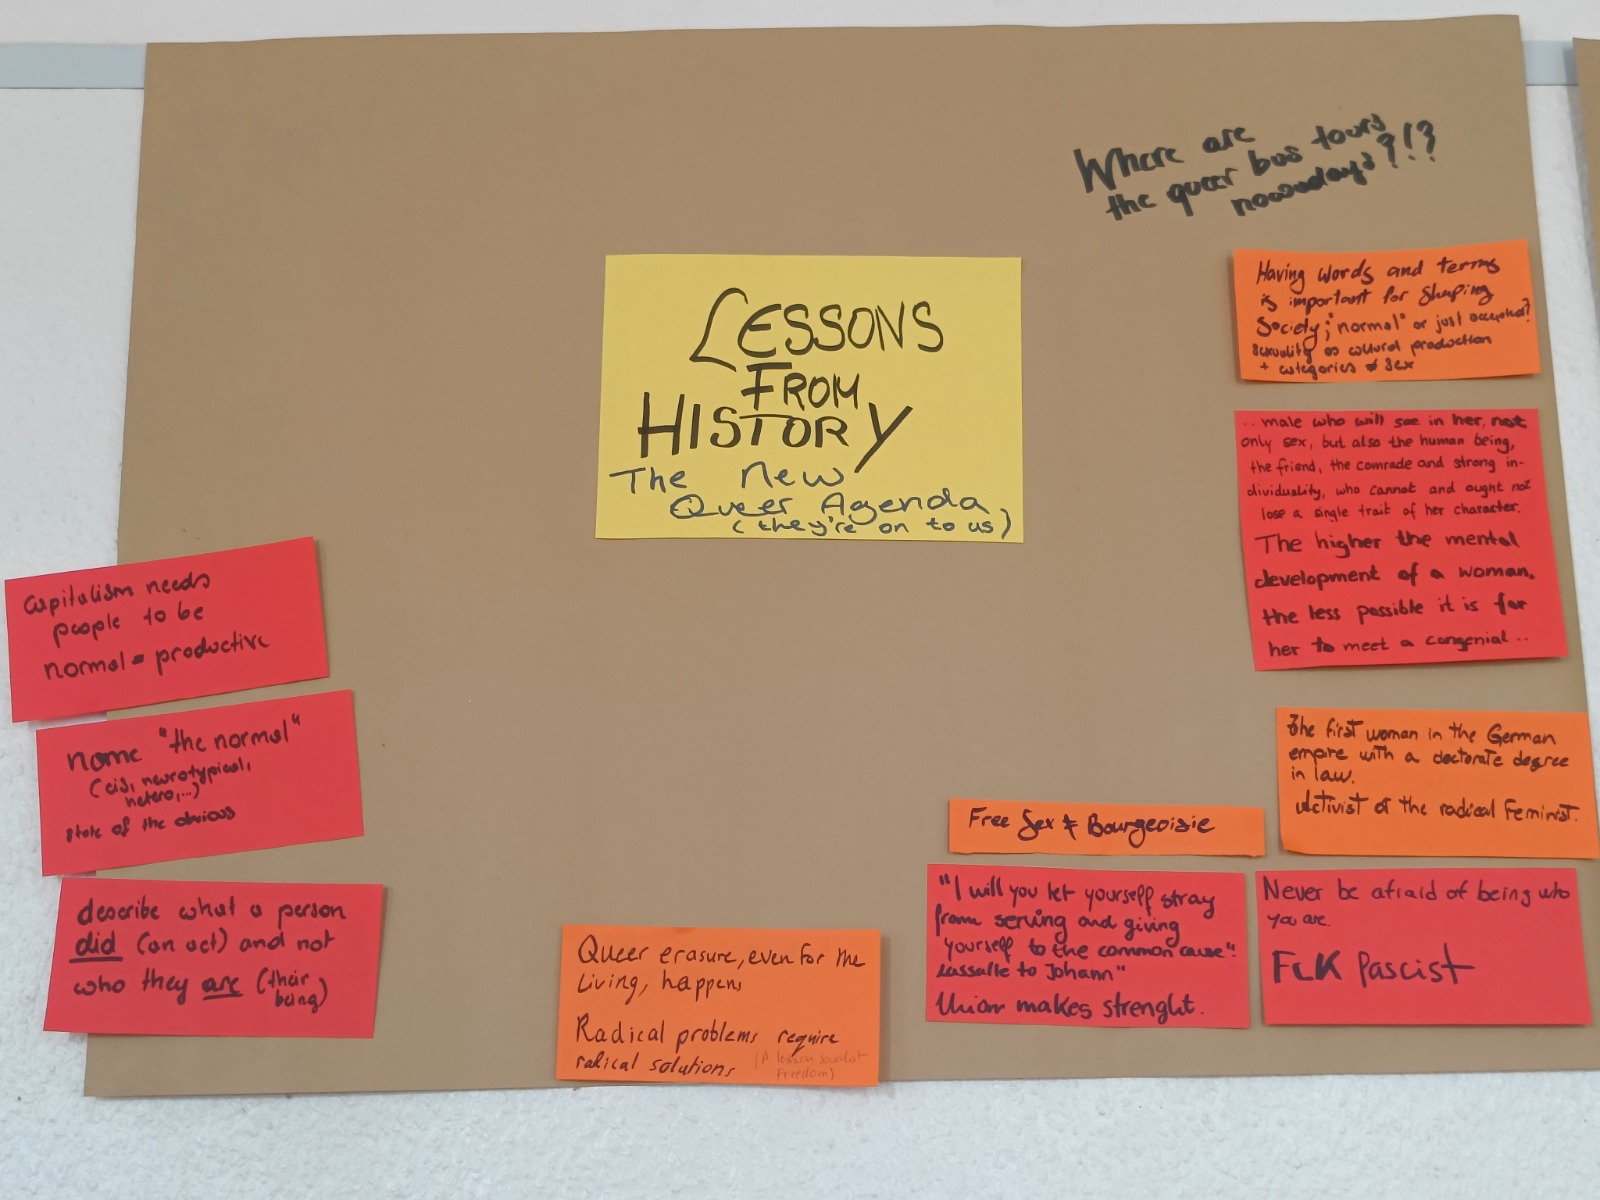 Where are
the queer bus tours
nowadays?!?
LESSONS
FROM
HISTORY
The New
Queer Agenda
(they're on to us)
Having words and terms
is important for shaping
Society; "normal" or just accepted?
sexuality as cultural production
+ categories ≠ sex
.. male who will see in her, not
only sex, but also the human being,
the friend, the comrade and strong in-
dividuality, who cannot and ought not
lose a single trait of her character.
The higher the mental
development of a woman,
the less possible it is for
her to meet a congenial ..
The first woman in the German
empire with a doctorate degree
in law.
Activist of the radical Feminist.
Free Sex ≠ Bourgeoisie
"I will you let yourself stray
from serving and giving
yourself to the common cause".
Lassalle to Johann"
Union makes strenght.
Never be afraid of being who
you are.
FcK Fascist
capitalism needs
people to be
normal = productive
name "the normal"
(cis, neurotypical,
hetero,...)
state of the obvious
describe what a person
did (an act) and not
who they are (their
being)
Queer erasure, even for the
living, happens
Radical problems require
radical solutions
(A lesson
Freedom)